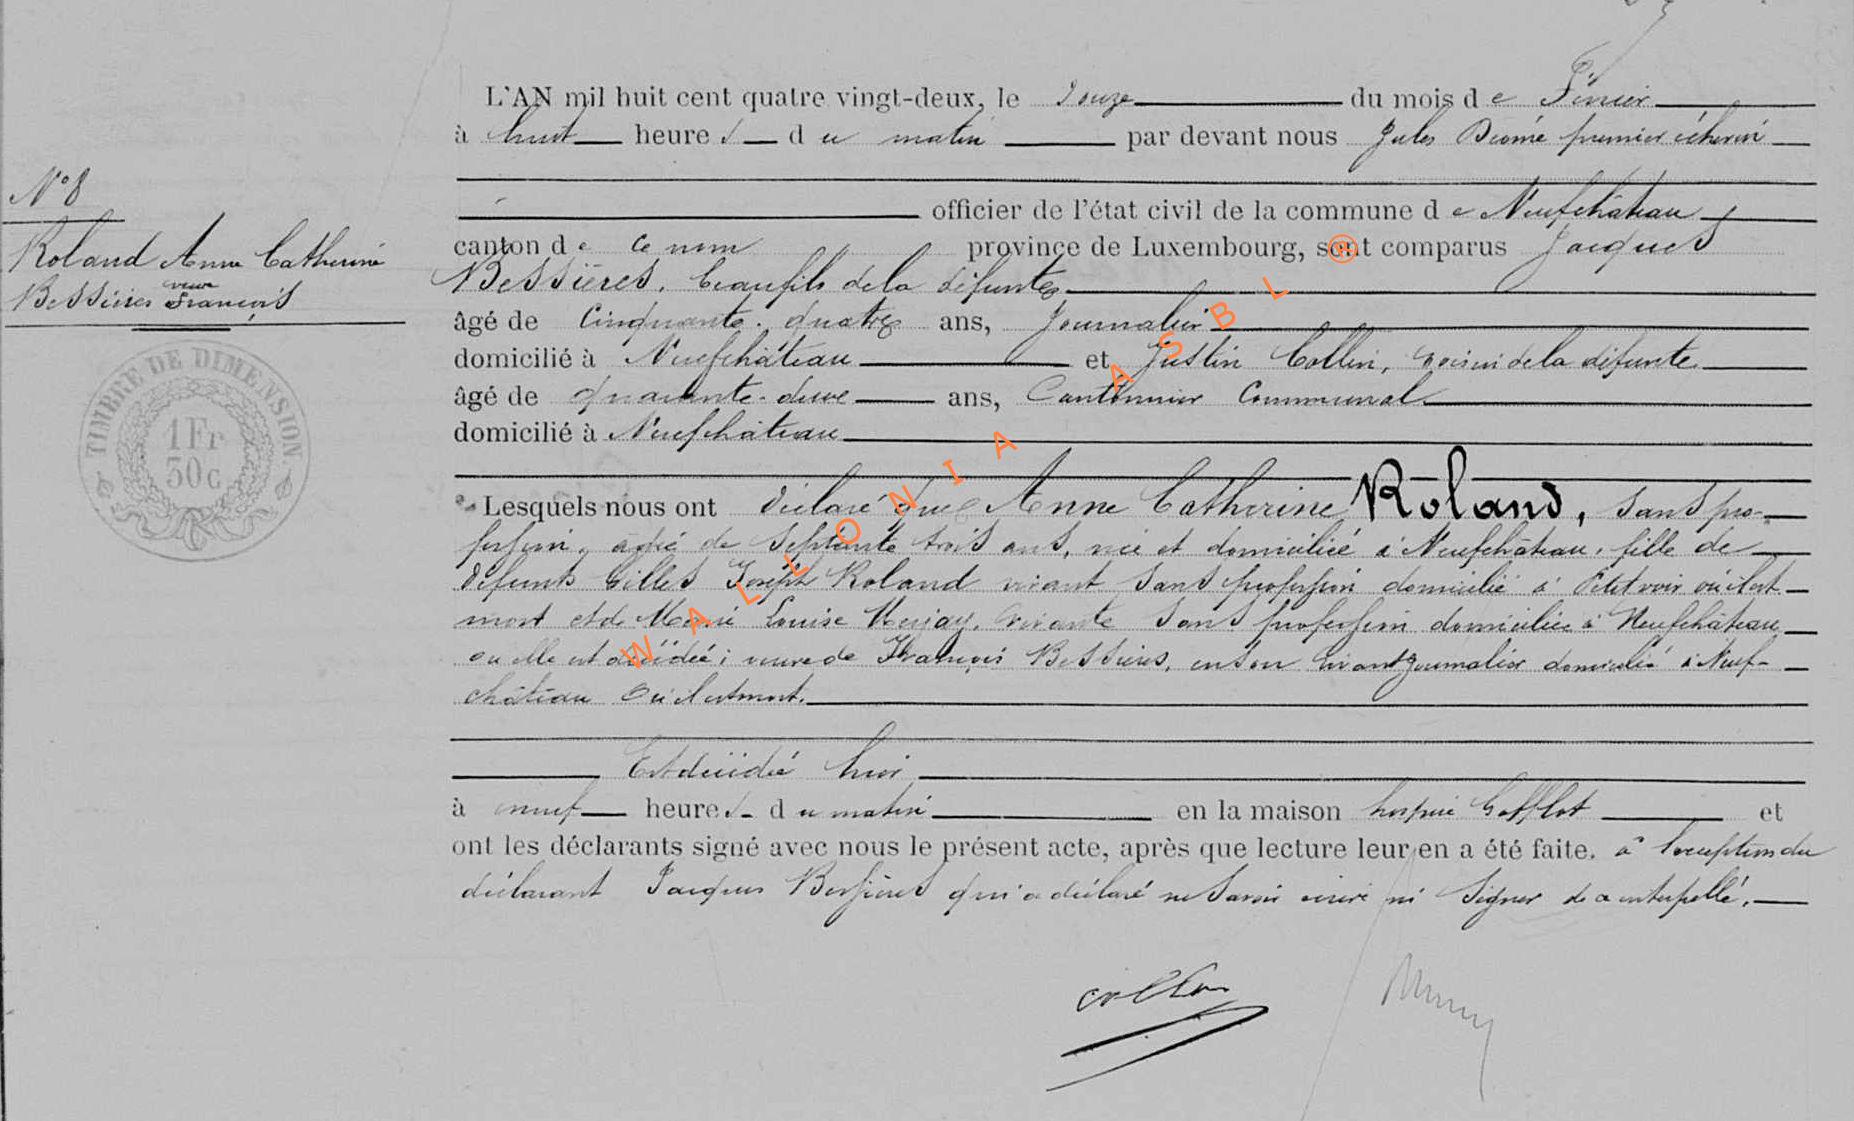 L'AN mil huit cent quatre vingt-deux, le douze du mois de Février
à huit heures du matin par devant nous Jules premier échevin
officier de l'état civil de la commune de Neufchâteau
canton de ce nom province de Luxembourg, sont comparus Jacques
Bessières, beaufils de la défunte
âgé de Cinquante-quatre ans, Journalier
domicilié à Neufchâteau et Justin Collin, voisin de la défunte
âgé de quarante-deux ans, Cantonnier Communal
domicilié à Neufchâteau
Lesquels nous ont déclaré que Anne Catherine Roland, sans pro-
fession, âgée de septante trois ans, née et domiciliée à Neufchâteau, fille de
défunts Gilles Joseph Roland vivant sans profession domicilié à Petitvoir où il est
mort et de Marie Louise vivante sans profession domiciliée à Neufchâteau
où elle est décédée; veuve de François Bessières, en son vivant journalier domicilié à Neuf-
château où il est mort.
Est décédée hier
à neuf heures du matin en la maison hospice et
ont les déclarants signé avec nous le présent acte, après que lecture leur en a été faite. à l'exception du
déclarant Jacques Bessières qui a déclaré ne savoir écrire ni signer de ce interpellé.
Collin
N° 8
Roland Anne Catherine
veuve
Bessières François
TIMBRE DE DIMENSION
1 Fr
50 c
WALLONIA ASBL ®